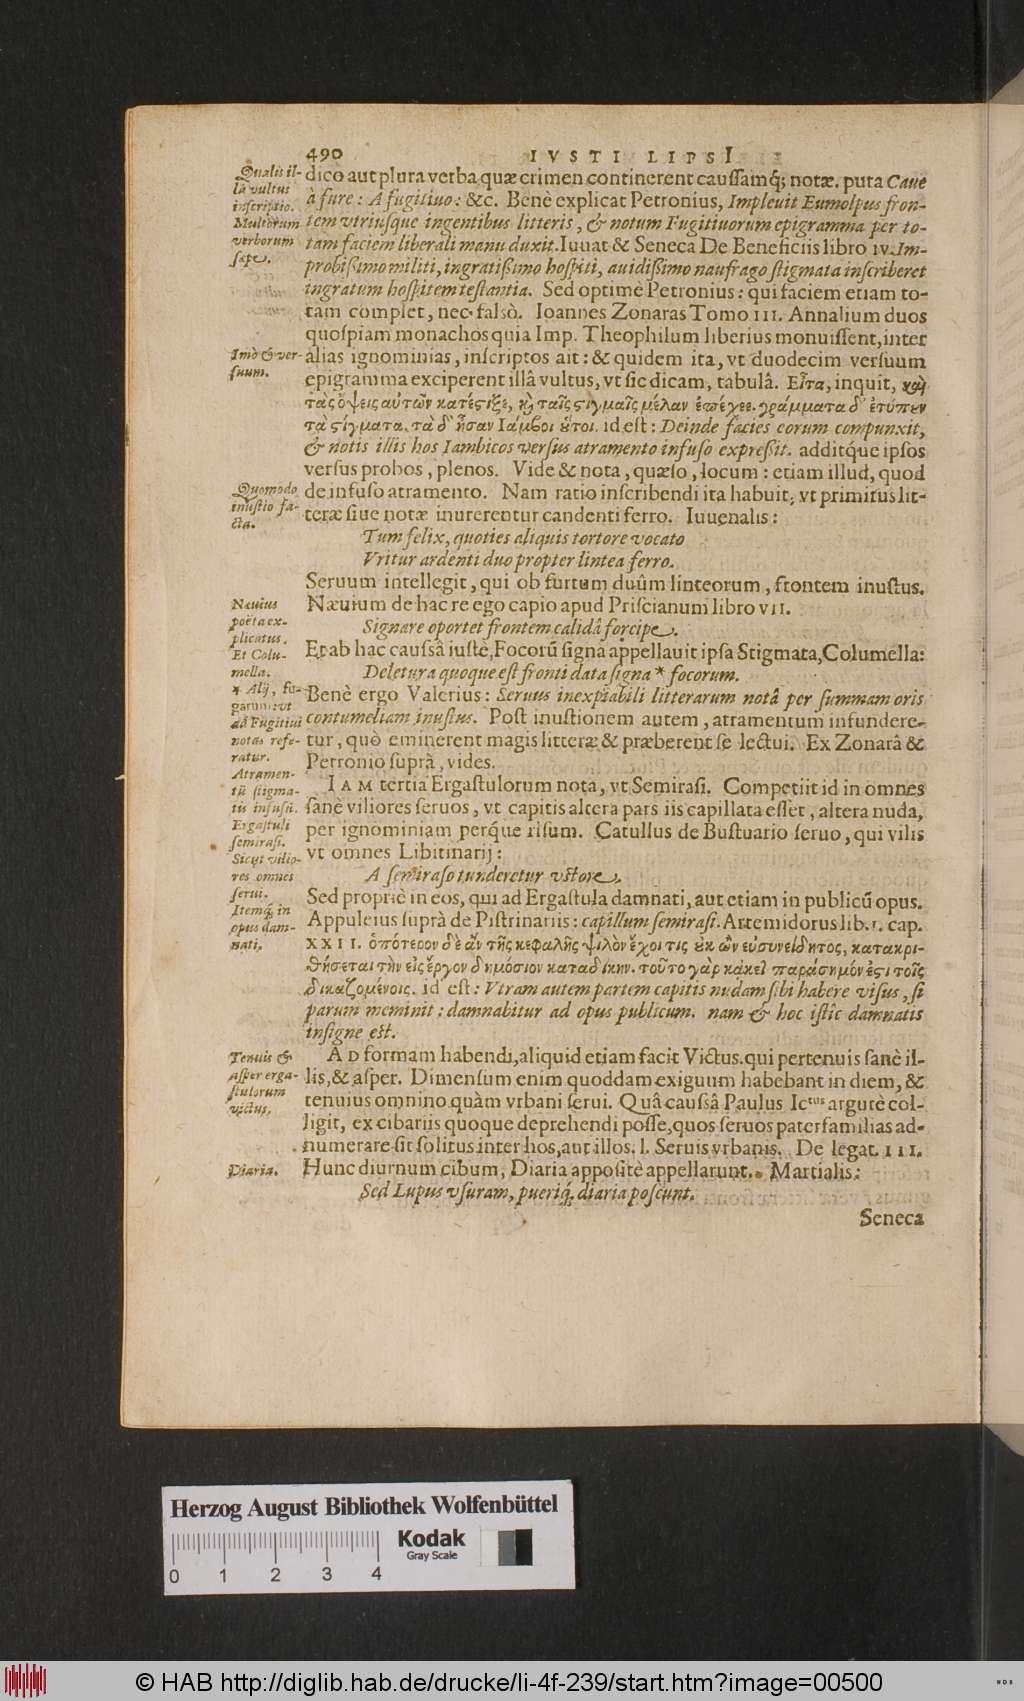 490
IVSTI LIPSI
Qualis il-
la vultus
inscriptio.
Multorum
verborum
sæpe.
dico aut plura verba quæ crimen continerent caussamq́; notæ. puta Caue
à fure: A fugitiuo: &c. Benè explicat Petronius, Impleuit Eumolpus fron-
tem vtriusque ingentibus litteris, & notum Fugitiuorum epigramma per to-
tam faciem liberali manu duxit. Iuuat & Seneca De Beneficiis libro IV. Im-
probißimo militi, ingratißimo hospiti, auidißimo naufrago stigmata inscriberet
ingratum hospitem testantia. Sed optimè Petronius: qui faciem etiam to-
tam complet, nec falsò. Ioannes Zonaras Tomo III. Annalium duos
quospiam monachos quia Imp. Theophilum liberius monuissent, inter
Imò & ver-
suum.
alias ignominias, inscriptos ait: & quidem ita, vt duodecim versuum
epigramma exciperent illâ vultus, vt sic dicam, tabulâ. Εἶτα, inquit, καὶ
τὰς ὄψεις αὐτῶν κατέστιξε, καὶ ταῖς στιγμαῖς μέλαν ἐπέχεε. γράμματα δ' ἐτύπουν
τὰ στίγματα. τὰ δ' ἦσαν Ιάμβοι οὗτοι. id est: Deinde facies eorum compunxit,
& notis illis hos Iambicos versus atramento infuso expreßit. additq́ue ipsos
versus probos, plenos. Vide & nota, quæso, locum: etiam illud, quod
Quomodo
inustio fa-
cta.
de infuso atramento. Nam ratio inscribendi ita habuit, vt primitus lit-
teræ siue notæ inurerentur candenti ferro. Iuuenalis:
Tum felix, quoties aliquis tortore vocato
Vritur ardenti duo propter lintea ferro.
Seruum intellegit, qui ob furtum duûm linteorum, frontem inustus.
Næuius
poëta ex-
plicatus.
Næuium de hac re ego capio apud Priscianum libro VII.
Signare oportet frontem calidâ forcipe.
Et Colu-
mella.
Et ab hac caussâ iustè, Focorũ signa appellauit ipsa Stigmata, Columella:
Deletura quoque est fronti data signa * focorum.
* Alij, fu-
garum: vt
ad Fugitiui
notas refe-
ratur.
Benè ergo Valerius: Seruus inexpiabili litterarum notâ per summam oris
contumeliam inustus. Post inustionem autem, atramentum infundere-
tur, quò eminerent magis litteræ & præberent se lectui. Ex Zonarâ &
Petronio suprà, vides.
Atramen-
tũ stigma-
tis infusũ.
Ergastuli
semirasi.
Sicut vilio-
res omnes
serui.
IAM tertia Ergastulorum nota, vt Semirasi. Competiit id in omnes
sanè viliores seruos, vt capitis altera pars iis capillata esset, altera nuda,
per ignominiam perq́ue risum. Catullus de Bustuario seruo, qui vilis
vt omnes Libitinarij:
A semiraso tunderetur vstore.
Itemq́, in
opus dam-
nati.
Sed propriè in eos, qui ad Ergastula damnati, aut etiam in publicũ opus.
Appuleius suprà de Pistrinariis: capillum semirasi. Artemidorus lib. I. cap.
XXII. ὁπότερον δὲ ἂν τῆς κεφαλῆς ψιλὸν ἔχοι τις οὐκ ὢν εὐσυνείδητος, κατακρι-
θήσεται τὴν εἰς ἔργον δημόσιον καταδίκην. τοῦτο γὰρ κἀκεῖ παράσημόν ἐστι τοῖς
δικαζομένοις. id est: Vtram autem partem capitis nudam sibi habere visus, si
parum meminit: damnabitur ad opus publicum. nam & hoc istîc damnatis
insigne est.
Tenuis &
asper erga-
stulorum
victus,
AD formam habendi, aliquid etiam facit Victus. qui pertenuis sanè il-
lis, & asper. Dimensum enim quoddam exiguum habebant in diem, &
tenuius omnino quàm vrbani serui. Quâ caussâ Paulus Ictus argutè col-
ligit, ex cibariis quoque deprehendi posse, quos seruos paterfamilias ad-
numerare sit solitus inter hos, aut illos. l. Seruis vrbanis. De legat. III.
Diaria.
Hunc diurnum cibum, Diaria appositè appellarunt. Martialis:
Sed Lupus vsuram, pueriq́, diaria poscunt.
Seneca
Herzog August Bibliothek Wolfenbüttel
Kodak
Gray Scale
0 1 2 3 4
© HAB http://diglib.hab.de/drucke/li-4f-239/start.htm?image=00500